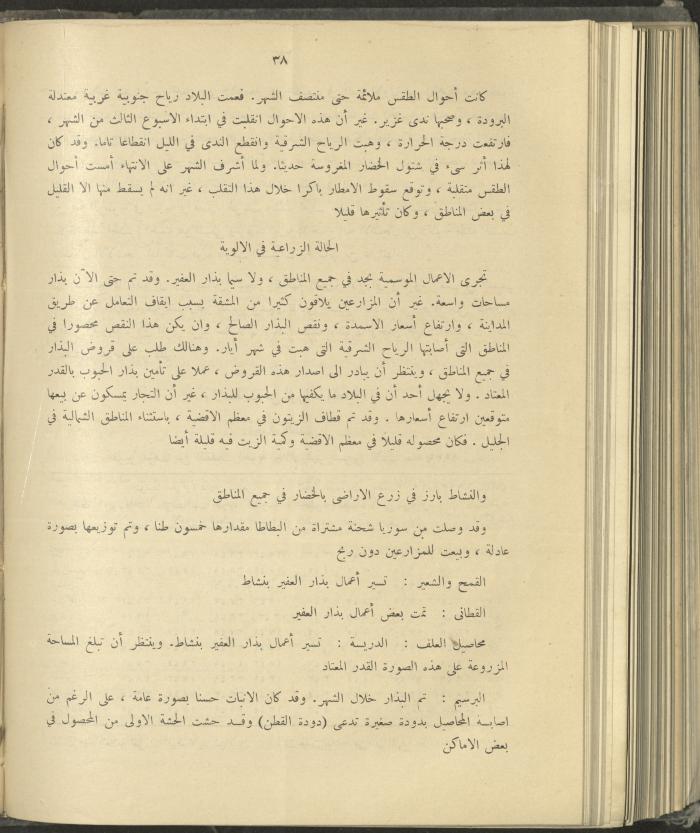 ٣٨
كانت أحوال الطقس ملائمة حتى منتصف الشهر. فعمت البلاد رياح جنوبية غربية معتدلة
البرودة ، وصحبها ندى غزير. غير أن هذه الاحوال انقلبت في ابتداء الاسبوع الثالث من الشهر ،
فارتفعت درجة الحرارة ، وهبت الرياح الشرقية وانقطع الندى في الليل انقطاعا تاما. وقد كان
لهذا أثر سىء في شتول الخضار المغروسة حديثا. ولما أشرف الشهر على الانتهاء أمست أحوال
الطقس متقلبة ، وتوقع سقوط الامطار باكرا خلال هذا التقلب ، غير انه لم يسقط منها الا القليل
في بعض المناطق ، وكان تأثيرها قليلا
الحالة الزراعية في الالوية
تجرى الاعمال الموسمية بجد في جميع المناطق ، ولا سيما بذار العفير. وقد تم حتى الآن بذار
مساحات واسعة. غير أن المزارعين يلاقون كثيرا من المشقة بسبب ايقاف التعامل عن طريق
المداينة ، وارتفاع أسعار الاسمدة ، ونقص البذار الصالح ، وان يكن هذا النقص محصورا في
المناطق التى أصابتها الرياح الشرقية التى هبت في شهر أيار. وهنالك طلب على قروض البذار
في جميع المناطق ، وينتظر أن يبادر الى اصدار هذه القروض ، عملا على تأمين بذار الحبوب بالقدر
المعتاد . ولا يجهل أحد أن في البلاد ما يكفيها من الحبوب للبذار ، غير أن التجار يمسكون عن بيعها
متوقعين ارتفاع أسعارها . وقد تم قطاف الزيتون في معظم الاقضية ، باستثناء المناطق الشمالية في
الجليل . فكان محصوله قليلا في معظم الاقضية وكمية الزيت فيه قليلة أيضا
والنشاط بارز في زرع الاراضى بالخضار في جميع المناطق
وقد وصلت من سوريا شحنة مشتراة من البطاطا مقدارها خمسون طنا ، وتم توزيعها بصورة
عادلة ، وبيعت للمزارعين دون ربح
القمح والشعير : تسير أعمال بذار العفير بنشاط
القطانى : تمت بعض أعمال بذار العفير
محاصيل العلف : الدريسة : تسير أعمال بذار العفير بنشاط. وينتظر أن تبلغ المساحة
المزروعة على هذه الصورة القدر المعتاد
البرسيم : تم البذار خلال الشهر. وقد كان الانبات حسنا بصورة عامة ، على الرغم من
اصابة المحاصيل بدودة صغيرة تدعى (دودة القطن) وقد حشت الحشة الاولى من المحصول في
بعض الاماكن